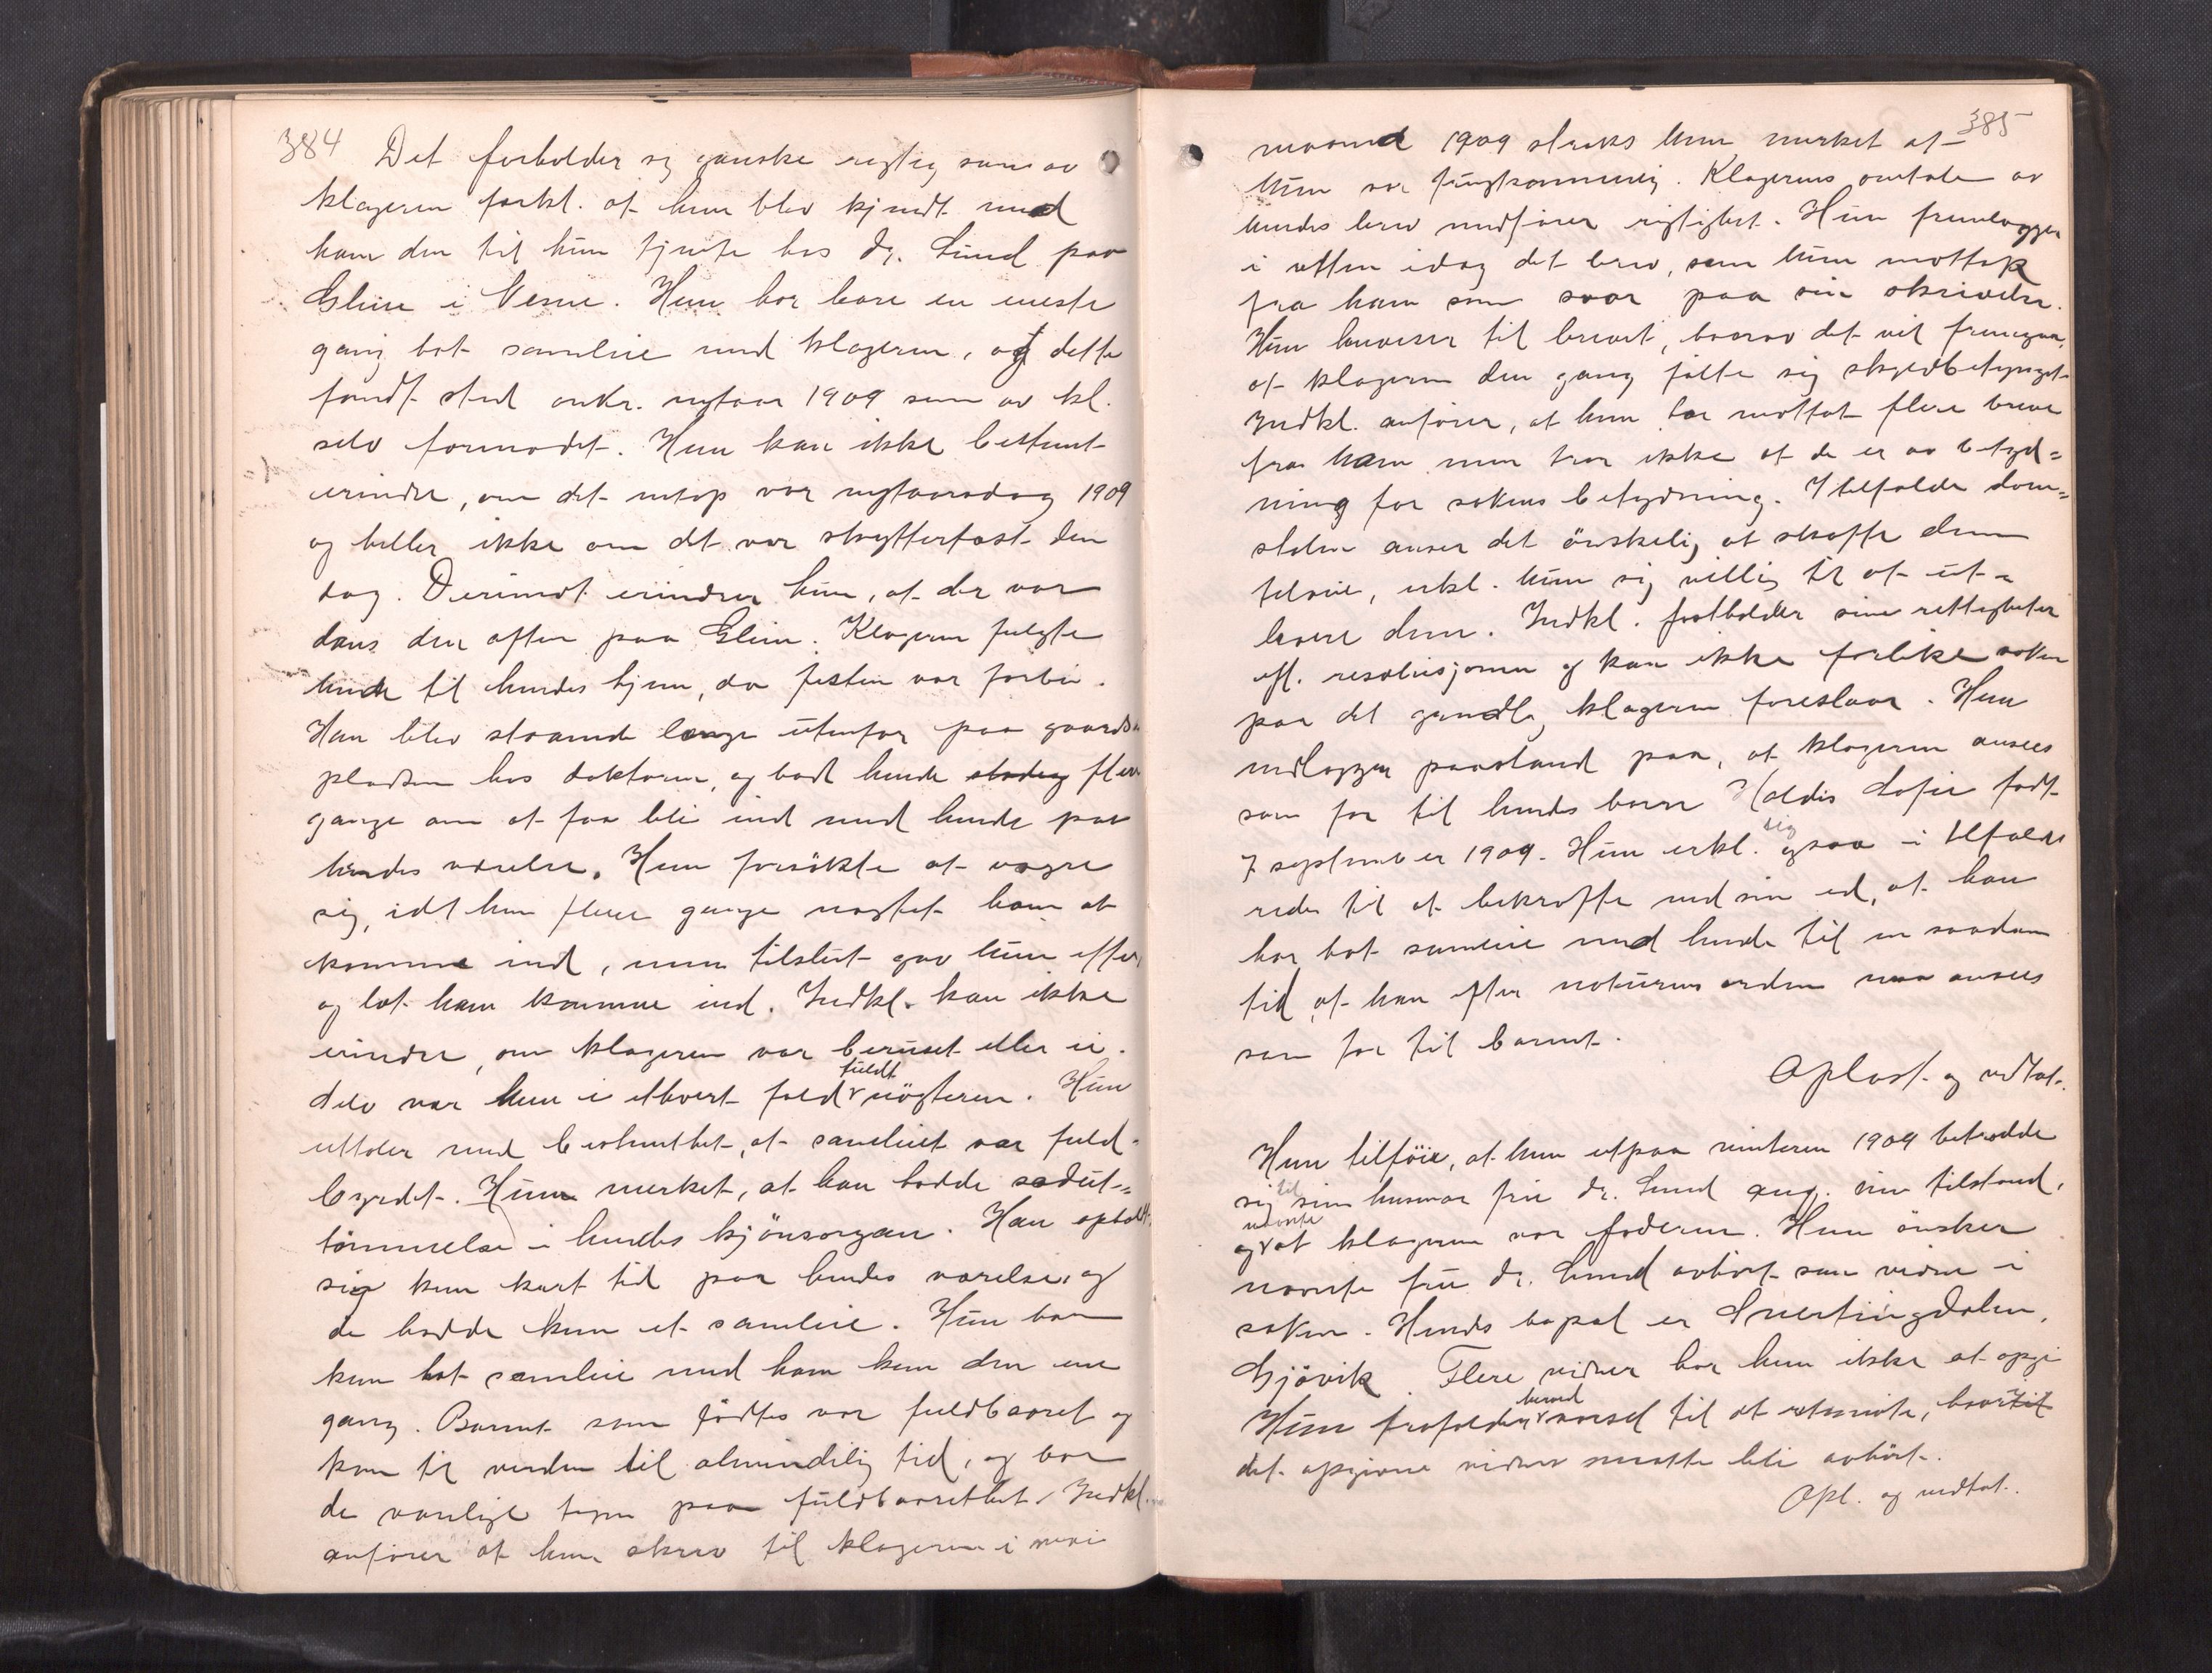 384
Det forholder sig ganske rigtig som av
klageren forkl. at hun blev kjendt med
ham den tid hun tjente hos dr. Lund paa
i. Hun har bare en eneste
gang hat samleie med klageren, og dette
fandt sted omkr. nytaar 1909 som av kl.
selv formodet. Hun kan ikke bestemt
erindre, om det netop var nytaarsdag 1909
og heller ikke om det var skytterfest den
dag. Derimot erindrer hun, at der var
dans den aften paa. Klageren fulgte
hende til hendes hjem, da festen var forbi.
Han blev staaende længe utenfor paa gaards-
pladsen hos doktoren, og bad hende stadig flere
gange om at faa bli ind med hende paa
hendes værelse. Hun forsökte at vægre
sig, idet hun flere gange nægtet ham at
komme ind, men tilslut gav hun efter,
og lot ham komme ind. Indkl. kan ikke
erindre, om klageren var beruset eller ei.
Selv var hun i ethvert fald fuldt nögtern. Hun
uttaler med bestemthet, at samleiet var fuld-
byrdet. Hun merket, at han hadde sædut-
tömmelse i hendes kjönsorgan. Han opholdt
sig kun kort tid paa hendes værelse, og
de hadde kun et samleie. Hun har
kun hat samleie med ham kun den ene
gang. Barnet som födtes var fuldbaaret og
kom til verden til almindelig tid, og bar
de vanlige tegn paa fuldbaarethet. Indkl.
anförer at hun skrev til klageren i mai
385
maaned 1909 straks hun merket at
hun var frugtsommelig. Klagerens omtale av
hendes brev medförer rigtighet. Hun fremlægger
i retten idag det brev, som hun mottok
fra ham som svar paa sin skrivelse.
Hun henviser til brevet, hvorav det vil fremgaa,
at klageren den gang fölte sig skyldbetynget.
Indkl. anförer, at hun har mottat flere breve
fra ham men tror ikke at de er av betyd-
ning for sakens betydning. I tilfælde dom-
stolen anser det önskelig at skaffe dem
tilveie, erkl. hun sig villig til at ut-
levere dem. Indkl. fastholder sine rettigheter
eft. resolusjonen og kan ikke forlike saken
paa det grundlag klageren foreslaar. Hun
nedlægger paastand paa, at klageren ansees
som far til hendes barn Haldis Sofie födt
7 september 1909. Hun erkl. sig ogsaa i tilfælde
rede til at bekræfte med sin ed, at han
har hat samleie med hende til en saadan
tid, at han efter naturens orden maa ansees
som far til barnet.
Oplæst og vedtat.
Hun tilföier, at hun utpaa vinteren 1909 betrodde
sig til sin husmor fru dr. Lund ang. sin tilstand,
og nævnte at klageren var faderen. Hun önsker
nævnte fru dr. Lund avhört som vidne i
saken. Hendes bopæl er Snertingdalen,
Gjövik. Flere vidner har hun ikke at opgi
Hun frafalder herved varsel til et retsmöte, hvortil
det opgivne vidne maatte bli avhört.
Opl. og vedtat.